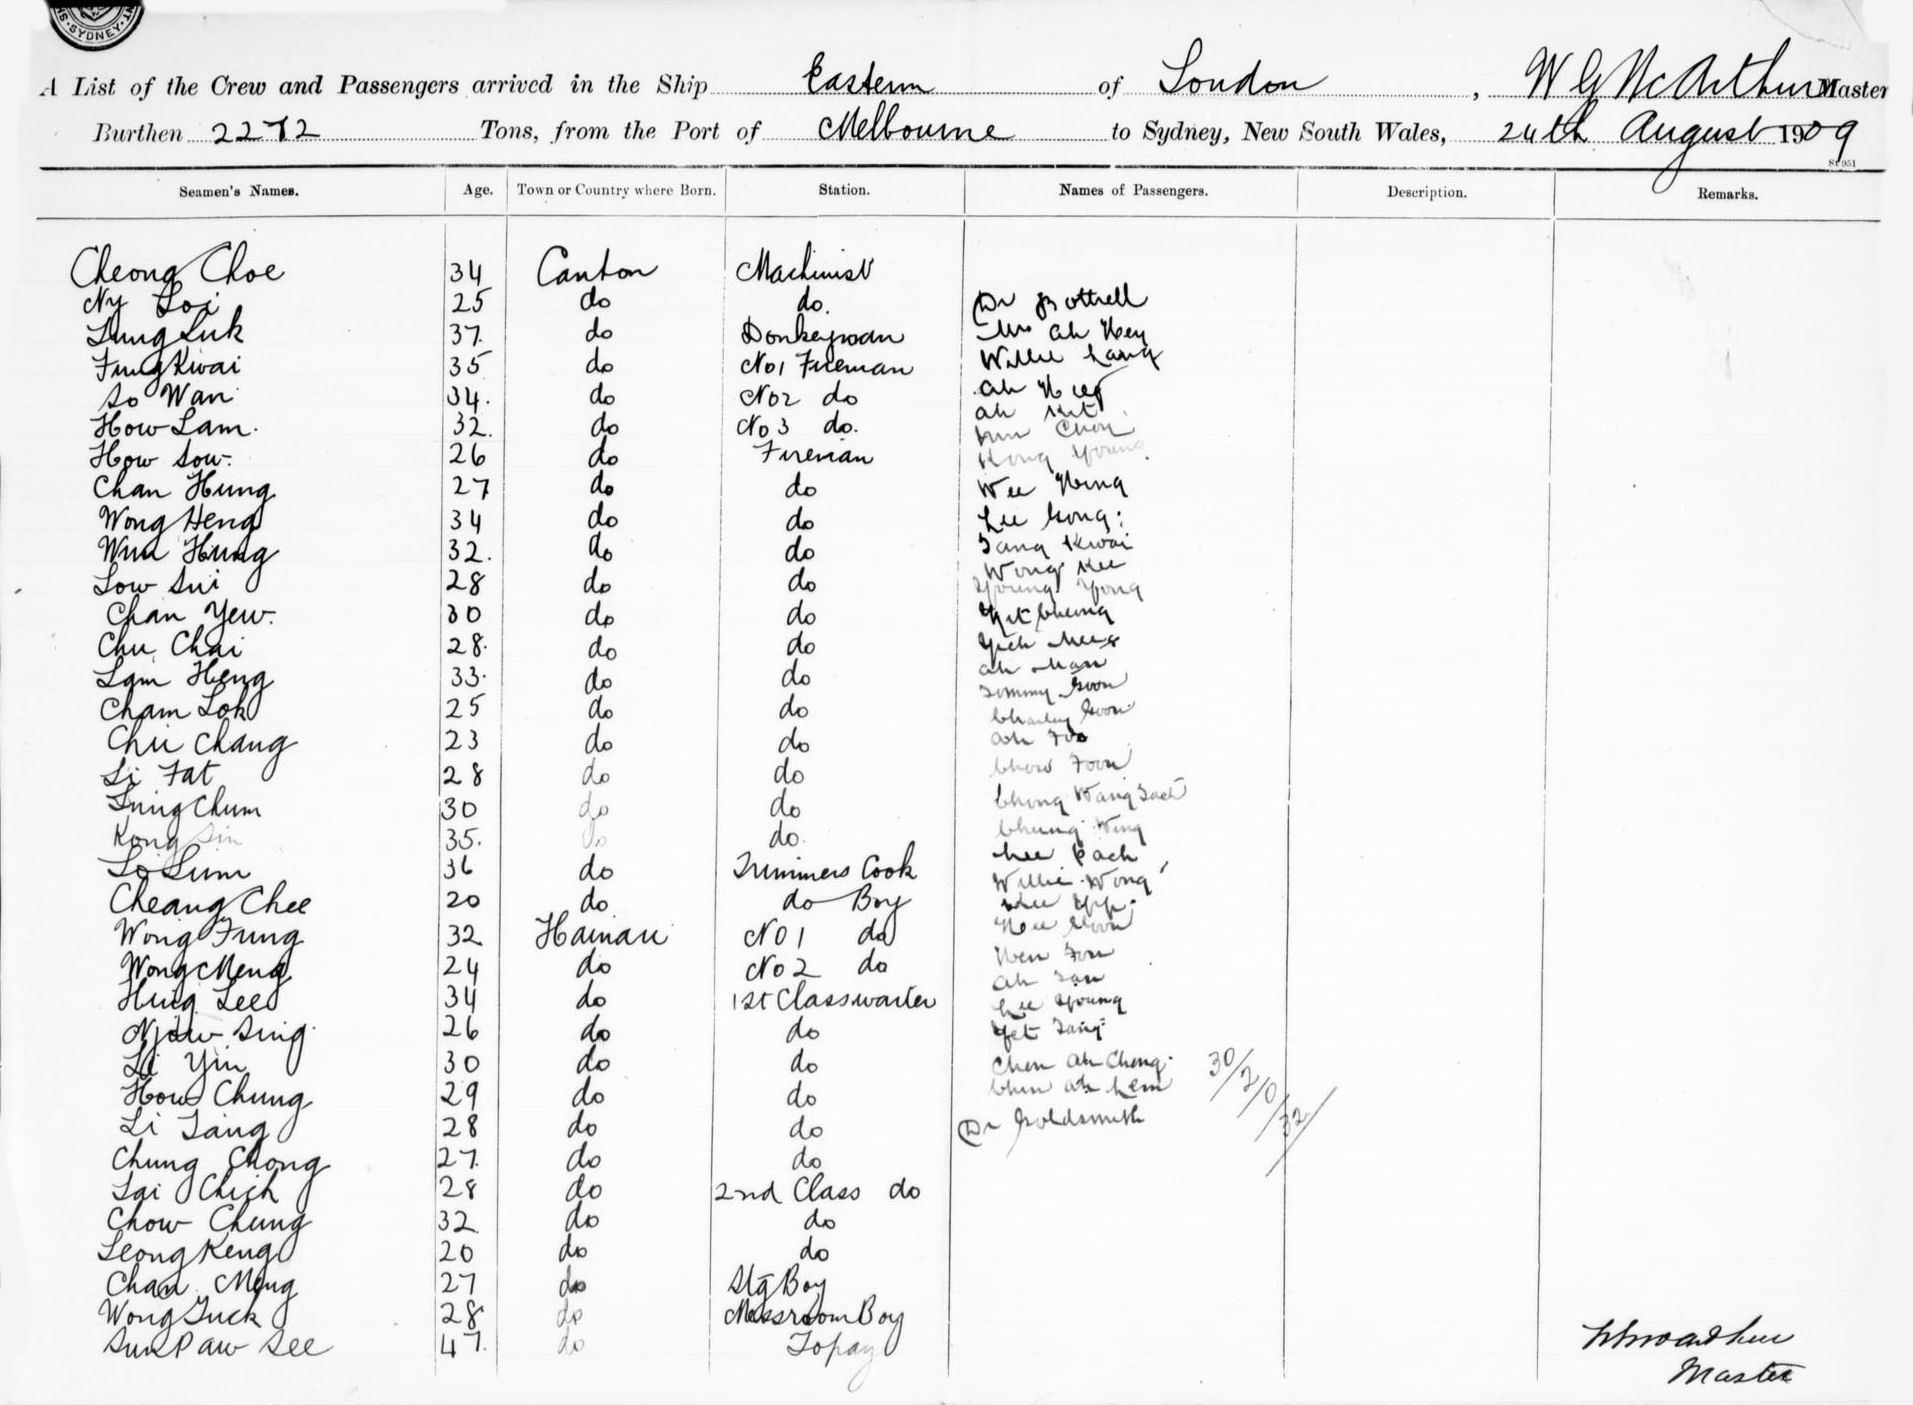 SYDNEY
A List of the Crew and Passengers arrived in the Ship Eastern of London, W G McArthur Master
Burthen 2272 Tons, from the Port of Melbourne to Sydney, New South Wales, 24th August 1909
Seamen's Names. Age. Town or Country where Born. Station. Names of Passengers. Description. Remarks.
Cheong Choe 34 Canton Machinist
Ny Loi 25 do do. Dr Bottrell
Lung Luk 37. do Donkeyman Mrs Ah Hey
Fung Kwai 35 do No1 Fireman Willie Lang
So Wan 34. do No2 do Ah
Ah Kit
How Lam. 32. do No 3 do. Chon
How Sow. 26 do Fireman Kong Young
Chan Hung 27 do do Wee Hing
Wong Heng 34 do do Lee Gong
Wun Hung 32. do do Tang Kwai
Wong Kee
Low Sui 28 do do Young Yong
Chan Yew. 30 do do Yit Cheong
Chu Chai 28. do do
Lam Heng 33. do do Ah Man
Tommy Goon
Cham Lok 25 do do Charley Goon
Chu Chang 23 do do Ah Foo
Li Fat 28 do do Chow Foon
Lung Chum 30 do do Chong Wang
Kong Sin 35. do do. Chung Wing
Lo Sum 36 do Trimmers Cook Lee Pack
Willie Wong
Cheang Chee 20 do do Boy Lee Yip.
Wong Fung 32 Hainan No 1 do Hee Goon
Wong Meng 24 do No 2 do Hen Fon
Ah San
Hung Lee 34 do 1st Class waiter Lee Young
Njow Sing 26 do do Yet Tang
Li Yin 30 do do Chen Ah Chong. 30/2/0/32/
How Chung 29 do do Chin Ah Lem
Li Tang 28 do do Dr Goldsmith
Chung Chong 27. do do
Lai Chich 28 do 2nd Class do
Chow Chung 32 do do
Leong Keng 20 do do
Chan Meng 27 do Stg Boy
Wong Tuck 28 do Messroom Boy
Sun Paw See 47. do Topay
W McArthur
Master